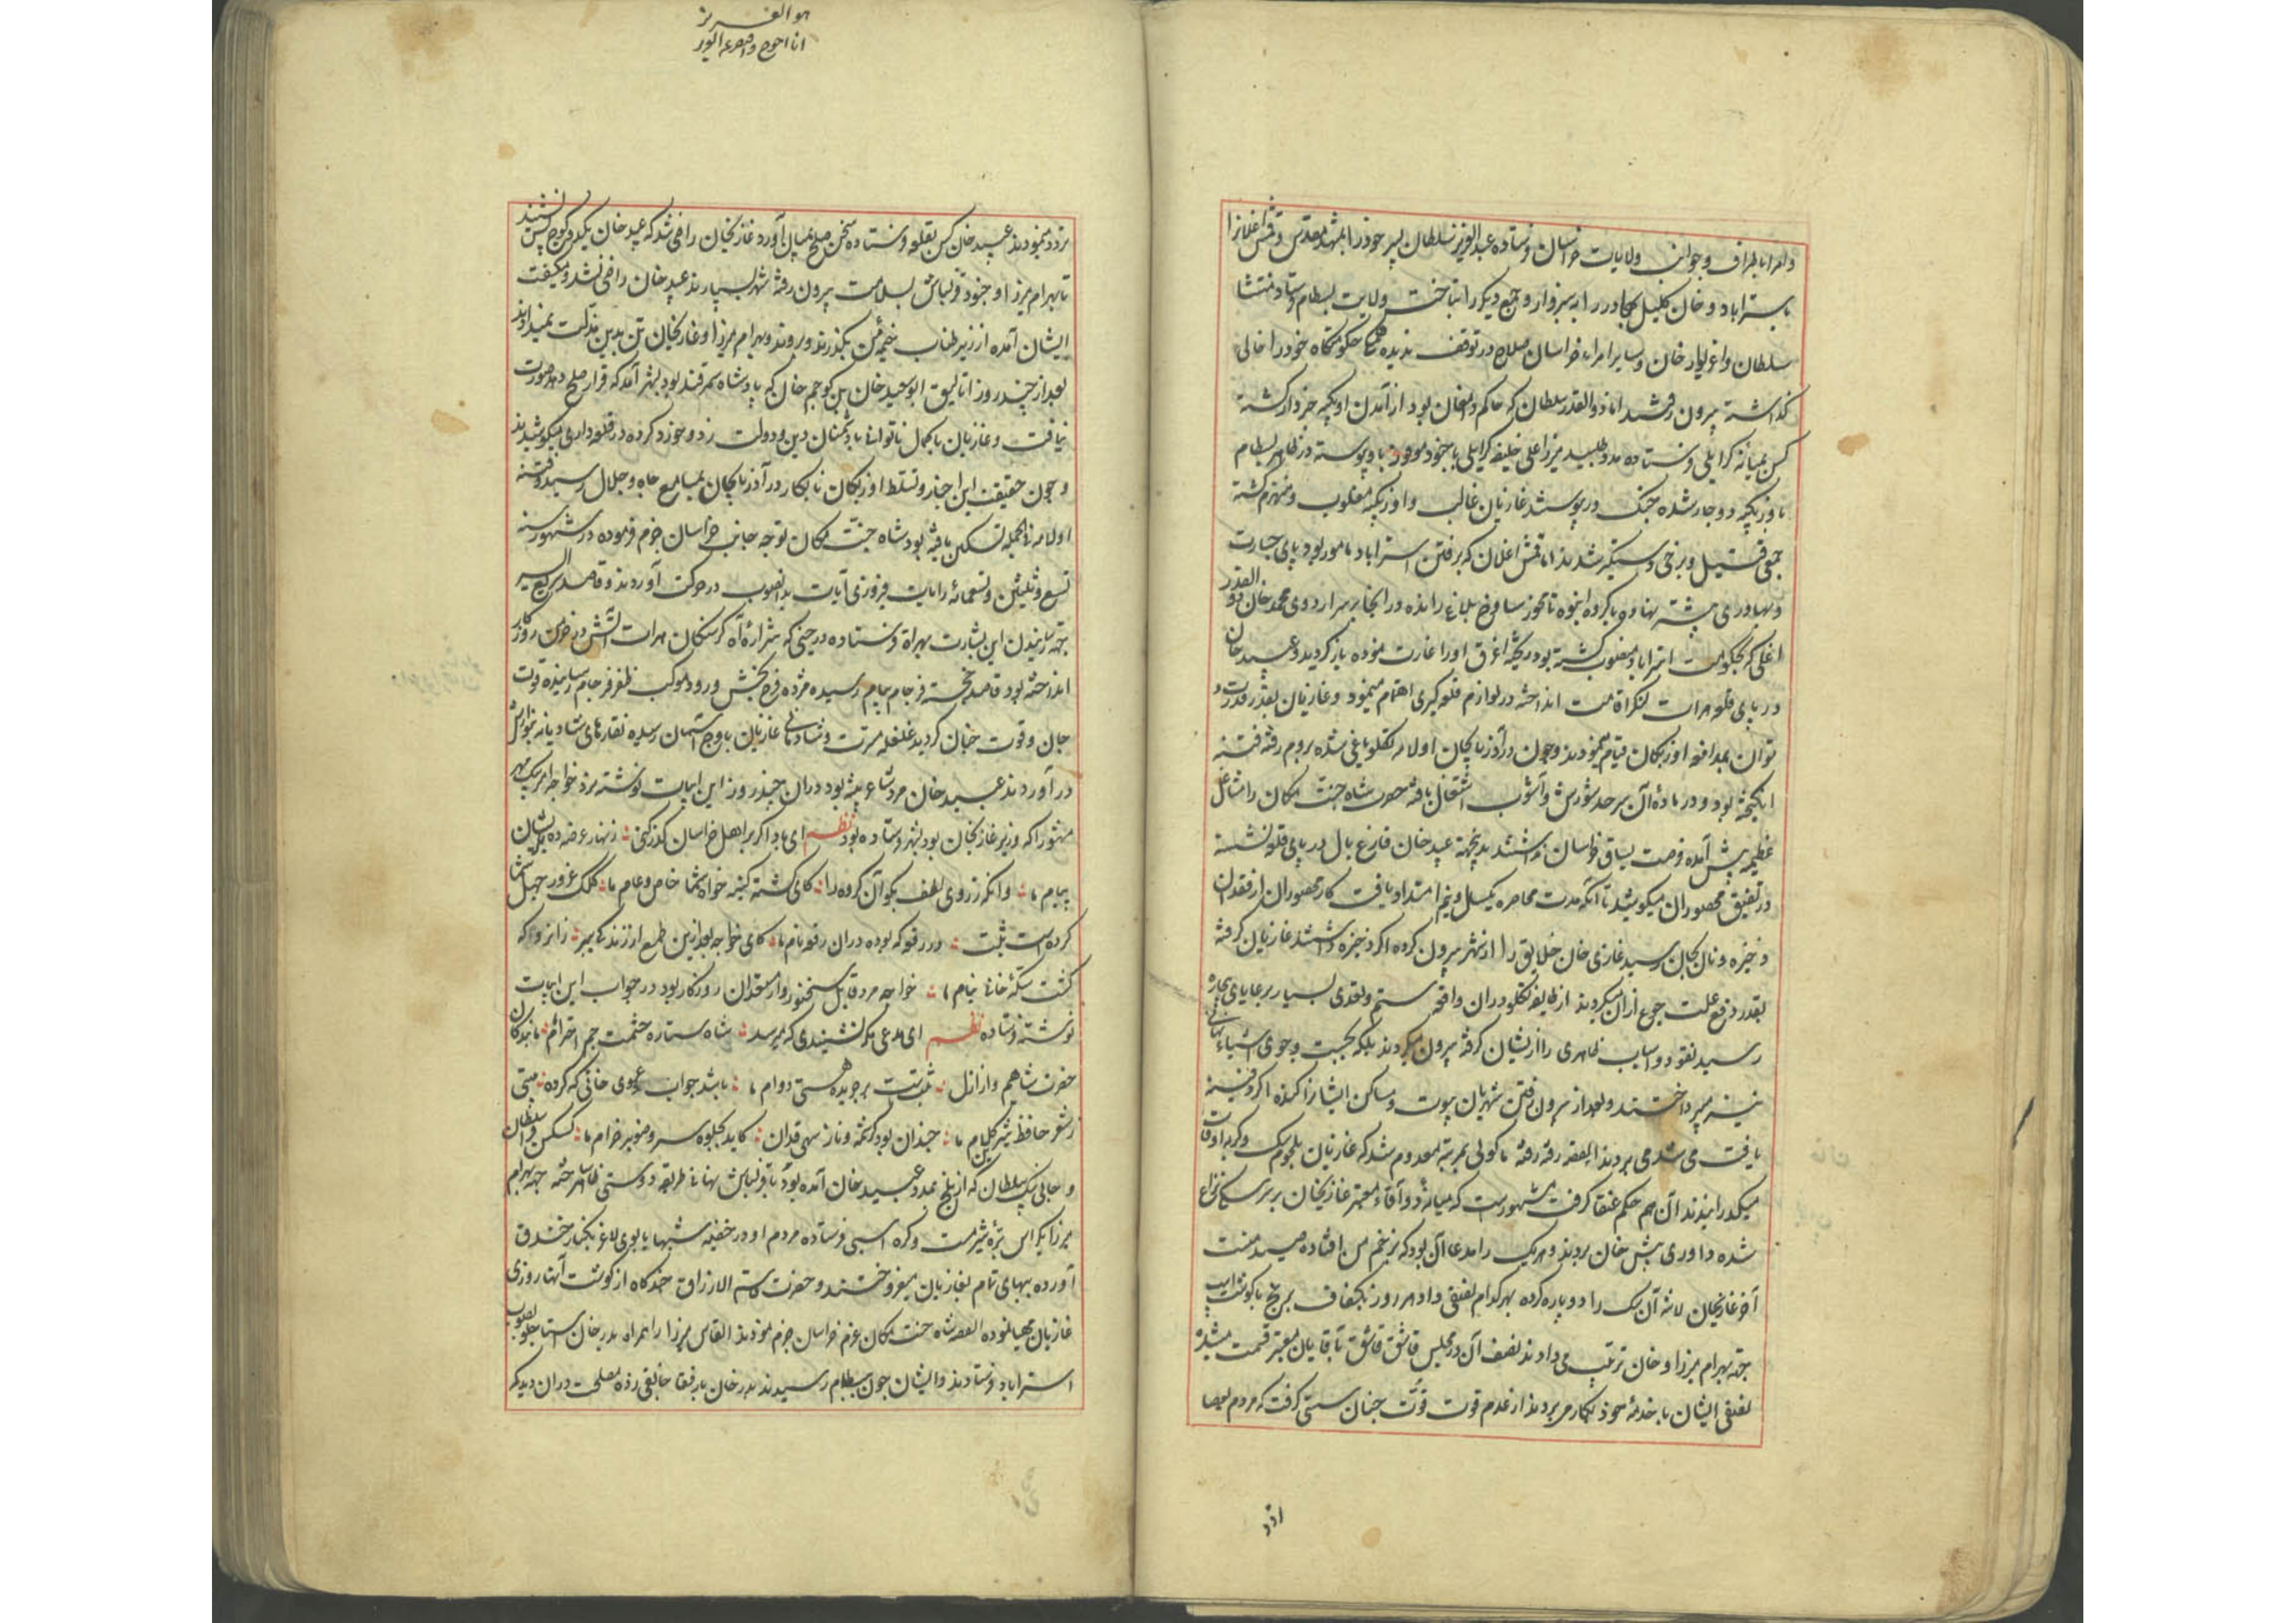 و امرا باطراف و جوانب ولایات خراسان فرستاده عبدالعزیز سلطان پسر خود را بمشهد مقدس و قمش اغلانرا
باستراباد و خان کلیل بهادر را به سبزوار و جمع دیکر را بتاخت ولایت بسطام فرستاد منتشا
سلطان و اغزیوار خان و سایر امراء خراسان صلاح در توقف ندیده حکومتکاه خود را خالی
کذاشته بیرون رفتند اما ذوالقدر سلطان که حاکم دامغان بود از آمدن اوزبکیه خبردار کشته
کس بمیانه کرایلی فرستاده مدد طلبید میرزا علی خلیفه کرایلی با جنود موفور باو پیوسته در ظاهر بسطام
با اوزبکیه دوچار شده جنک در پیوستند غازیان غالب و اوزبکیه مغلوب و منهزم کشته
جمعی قتیل و برخی دستکیر شدند اما قمش اغلان که برفتن استراباد مامور بود پای جسارت
و بهادری پیش نهاده با کروه انبوه تا خوار ساوخ بلاغ رانده در آنجا بر سر اردوی محمد خان ذو القدر
اغلی که بحکومت استراباد منصوب کشته بود ریخته اغرق او را غارت نموده باز کردید و عبید خان
در پای قلعه هرات لنکر اقامت انداخته در لوازم قلعه کیری اهتمام مینمود و غازیان بقدر قدرت و
توان بمدافعه اوزبکان قیام مینمودند و چون در آذربایجان اولامه تکلو یاغی شده بروم رفته فتنه
انکیخته بود و در ماده آن سرحد شورش و آشوب اشتغال یافته حضرت شاه جنت مکان را مشاغل
عظیمه پیش آمده فرصت یساق خراسان نداشتند بدینجهة عبید خان فارغ بال در پای قلعه نشسته
در تضییق محصوران میکوشید تا آنکه مدت محاصره یکسال و نیم امتداد یافت کار محصوران از فقدان
ذخیره و نان بجان رسید غازی خان خلایق را از شهر بیرون کرده اکر ذخیره داشتند غازیان کرفته
بقدر دفع علت جوع از آن میکردند از طایفه تکلو در آن واقعه ستم و تعدی بسیار برعایای بیچاره
رسید نقود و اسباب ظاهری را از ایشان کرفته بیرون میکردند بلکه بجست و جوی اشیاء نهانی
نیز میپرداختند و بعد از بیرون رفتن شهریان بیوت و مساکن ایشانرا کنده اکر دفینه
یافت می شد می بردند القصه رفته رفته ماکولی بمرتبه معدوم شد که غازیان بلحوم سک و کربه اوقات
میکذرانیدند آن هم حکم عنقا کرفت مشهورست که میانه دو آقاء معتبر غازیخان بر سر سکی نزاع
شده داوری پیش خان بردند و هر یک را مدعا آن بود که بزخم من افتاده صید منست
آخر غازیخان لاشه آن سک را دو پاره کرده بهر کدام نصفی داد هر روز یک کفاف برنج با کوشت اسب
جهة بهرام میرزا و خان ترتیب می دادند نصف آن در مجلس قاشق قاشق بآقایان معتبر قسمت میشد
نصفی ایشان با خدمه خود بکار می بردند از عدم قوت قوّت چنان سستی کرفت که مردم بعصا
تردد
هو العزیز
تردد مینمودند عبید خان کس بقلعه فرستاده سخن صلح بمیان آورد غازیخان راضی شد که عبید خان یک کوچ پس نشیند
تا بهرام میرزا و جنود قزلباش بسلامت بیرون رفته شهر بسپارند عبید خان راضی نشد و میکفت
ایشان آمده از زیر طناب خیمه من بکذرند و بروند و بهرام میرزا و غازیخان تن بدین مذلت نمیدادند
بعد از چند روز اتالیق ابو سعید خان بن کوچم خان که پادشاه سمرقند بود بشهر آمد که قرار صلح دهد صورت
نیافت و غازیان با کمال ناتوانی با دشمنان دین و دولت زد و خورد کرده در قلعه داری میکوشیدند
و چون حقیقت این اخبار و تسلط اوزبکان نابکار در آذربایجان بمسامع جاه و جلال رسید و فتنه
اولامه فی الجمله تسکین یافته بود شاه جنت مکان توجه جانب خراسان جزم فرموده در شهور سنه
تسع و ثلثین و تسعمائه رایات فیروزی آیات بدانصوب در حرکت آوردند و قاصد سریع السیر
جهة رسانیدن این بشارت بهراة فرستاده در حینی که شراره آه کرسنکان هرات آتش در خرمن روزکار
انداخته بود قاصد خجسته فرجام بجام رسیده مژده فرح بخش ورود موکب ظفر فرجام رسانیده قوت
جان و قوت جنان کردید غلغله مسرت و شادمانی غازیان باوج آسمان رسیده نقارهای شادیانه بنوازش
در آوردند عبید خان مرد شاعر پیشه بود در آن چند روز این ابیات نوشته نزد خواجه امیر بیک مهر
منثور را که وزیر غازیخان بود بشهر فرستاده بود نظم ای باد اکر بر اهل خراسان کذر کنی زنهار عرضه ده بر ایشان
پیام ما وانکه ز روی لطف بکو آن کروه را کای کشته کینه خواه شما خاص و عام ما کلک غرور جهل شما
کرده است ثبت در رقعه که بوده در آن رقعه نام ما کای خواجه بعد ازین طمع از زندکی ببر زانرو که
کشت سکه خانی بنام ما خواجه مرد قابل سخنور و از مستعدان روزکار بود در جواب این ابیات
نوشته فرستاده نظم ای مدعی مکر نشنیدی که میرسد شاه ستاره حشمت جم احترام ما بندکان
حضرت شاهیم و از ازل ثبت است بر جریده هستی دوام ما باشد جواب دعوی خانی که کرده بیتی
ز شعر حافظ شیرین کلام ما چندان بود کرشمه و ناز سهی قدان کاید بجلوه سرو صنوبر خرام ما کسکن قرا سلطان
و جانی بیک سلطان که از بلخ بمدد عبید خان آمده بود با قزلباش نهانی طریقه دوستی ظاهر ساخته جهة بهرام
میرزا یکراس بره شیرمست و کره اسبی فرستاده مردم او در خفیه شبها یابوی لاغر بکنار خندق
آورده ببهای تمام بغازیان میفروختند و حضرت قاسم الارزاق چندکاه از کوشت آنها روزی
غازیان مهیا نموده القصه شاه جنت مکان عزم خراسان جزم نمودند القاس میرزا را همراه بدر خان استاجلو بصوب
استراباد فرستادند و ایشان چون بسطام رسیدند بدر خان با رفقا جانقی زده مصلحت در آن دید که